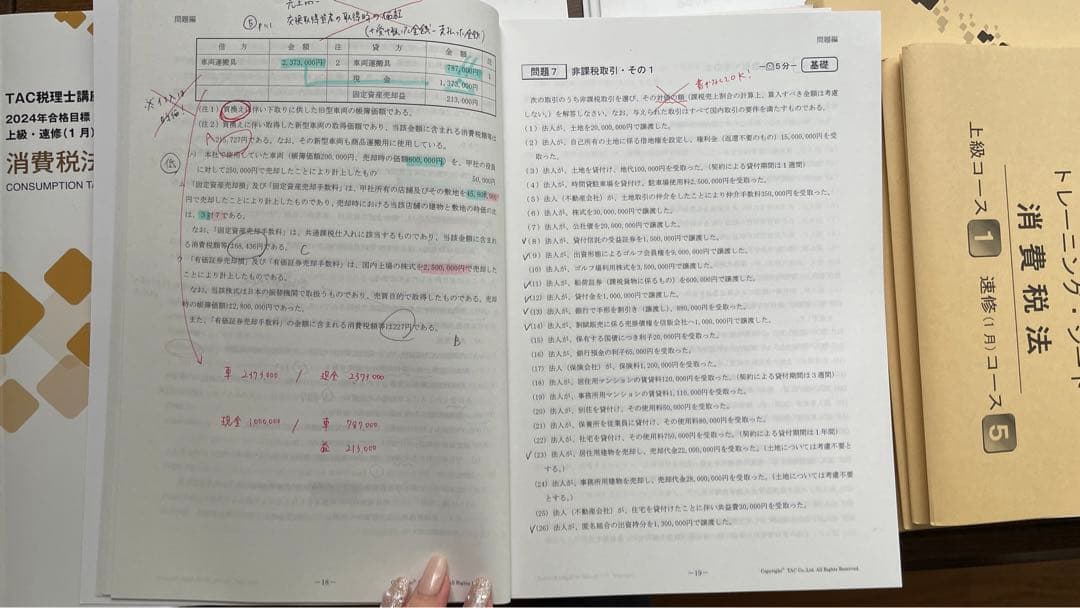 TAC税理士講座
2024年合格目標
上級・速修(1月)
消費税法
CONSUMPTION TA
問題編
交換取得資産の取得時の価額
借 方 金 額 注 貸 方 金 額 注
車両運搬具 2,373,000円 2 車両運搬具 787,000円 1
現 金 1,373,000円
固定資産売却益 213,000円
(注1) 買換えに伴い下取りに供した旧型車両の帳簿価額である。
(注2) 買換えに伴い取得した新型車両の取得価額であり、当該金額に含まれる消費税額等は
215,727円である。なお、その新型車両も商品運搬用に使用している。
本社で使用していた車両(帳簿価額200,000円、売却時の価額600,000円)を、甲社の役員
に対して250,000円で売却したことにより計上したもの 50,000円
低
「固定資産売却損」及び「固定資産売却手数料」は、甲社所有の店舗及びその敷地を
円で売却したことにより計上したものであり、売却時における当該店舗の建物と敷地の時価の比
は、3:7である。
なお、「固定資産売却手数料」は、共通課税仕入れに該当するものであり、当該金額に含まれ
る消費税額等268,436円 C
「有価証券売却損」及び「有価証券売却手数料」は、国内上場の株式を2,500,000円で売却した
ことにより計上したものである。
なお、当該株式は日本の振替機関で取扱うものであり、売買目的で取得したものである。売却
時の帳簿価額は2,800,000円であった。
また、「有価証券売却手数料」の金額に含まれる消費税額等は227円である。
B
車 2373000 / 現金 2373000
現金 1000000 / 車 787000
益 213000
-18-
問題編
問題7 非課税取引・その1 -5分- 基礎
書かなくてOK!
次の取引のうち非課税取引を選び、その対価の額(課税売上割合の計算上、算入すべき金額は考慮
しない。)を解答しなさい。なお、与えられた取引はすべて国内取引の要件を満たすものである。
(1) 法人が、土地を20,000,000円で譲渡した。
(2) 法人が、自己所有の土地に係る借地権を設定し、権利金(返還不要のもの)15,000,000円を受
取った。
(3) 法人が、土地を貸付け、地代100,000円を受取った。(契約による貸付期間は1週間)
(4) 法人が、時間貸駐車場を貸付け、駐車場使用料2,500,000円を受取った。
(5) 法人(不動産会社)が、土地取引の仲介をしたことにより仲介手数料350,000円を受取った。
(6) 法人が、株式を30,000,000円で譲渡した。
(7) 法人が、公社債を20,000,000円で譲渡した。
(8) 法人が、貸付信託の受益証券を1,500,000円で譲渡した。
(9) 法人が、出資形態によるゴルフ会員権を9,000,000円で譲渡した。
(10) 法人が、ゴルフ場利用株式を3,500,000円で譲渡した。
(11) 法人が、船荷証券(課税貨物に係るもの)を600,000円で譲渡した。
(12) 法人が、貸付金を1,000,000円で譲渡した。
(13) 法人が、銀行で手形を割引き(譲渡し)、980,000円を受取った。
(14) 法人が、割賦販売に係る売掛債権を信販会社へ1,000,000円で譲渡した。
(15) 法人が、保有する国債につき利子20,000円を受取った。
(16) 法人が、銀行預金の利子65,000円を受取った。
(17) 法人(保険会社)が、保険料1,200,000円を受取った。
(18) 法人が、居住用マンションの賃貸料120,000円を受取った。(契約による貸付期間は3週間)
(19) 法人が、事務所用マンションの賃貸料1,110,000円を受取った。
(20) 法人が、別荘を貸付け、その使用料50,000円を受取った。
(21) 法人が、保養所を従業員に貸付け、その使用料80,000円を受取った。
(22) 法人が、社宅を貸付け、その使用料750,000円を受取った。(契約による貸付期間は1年間)
(23) 法人が、居住用建物を売却し、売却代金22,000,000円を受取った。(土地については考慮不要と
する。)
(24) 法人が、事務所用建物を売却し、売却代金28,000,000円を受取った。(土地については考慮不要
とする。)
(25) 法人(不動産会社)が、住宅を貸付けたことに伴い共益費30,000円を受取った。
(26) 法人が、匿名組合の出資持分を1,300,000円で譲渡した。
-19-
Copyright© TAC Co.,Ltd. All Rights Reserved.
トレーニング・シート
消費税法
上級コース 1 速修(1月)コース 5